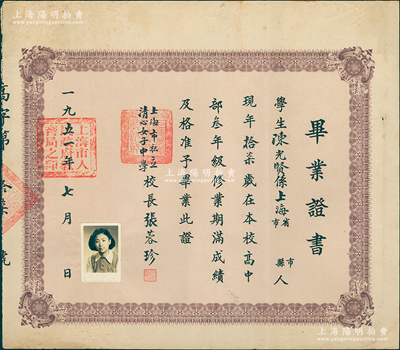 上海陽明拍賣
畢業證書
學生陳光賢係上海省市
市縣人
現年拾柒歲在本校高中
部叁年級修業期滿成績
及格准予畢業此證
上海市私立
清心女子中學校長張蓉珍
一九五一年七月 日
上海市人
育局之印
高字第
號
上海陽明拍賣